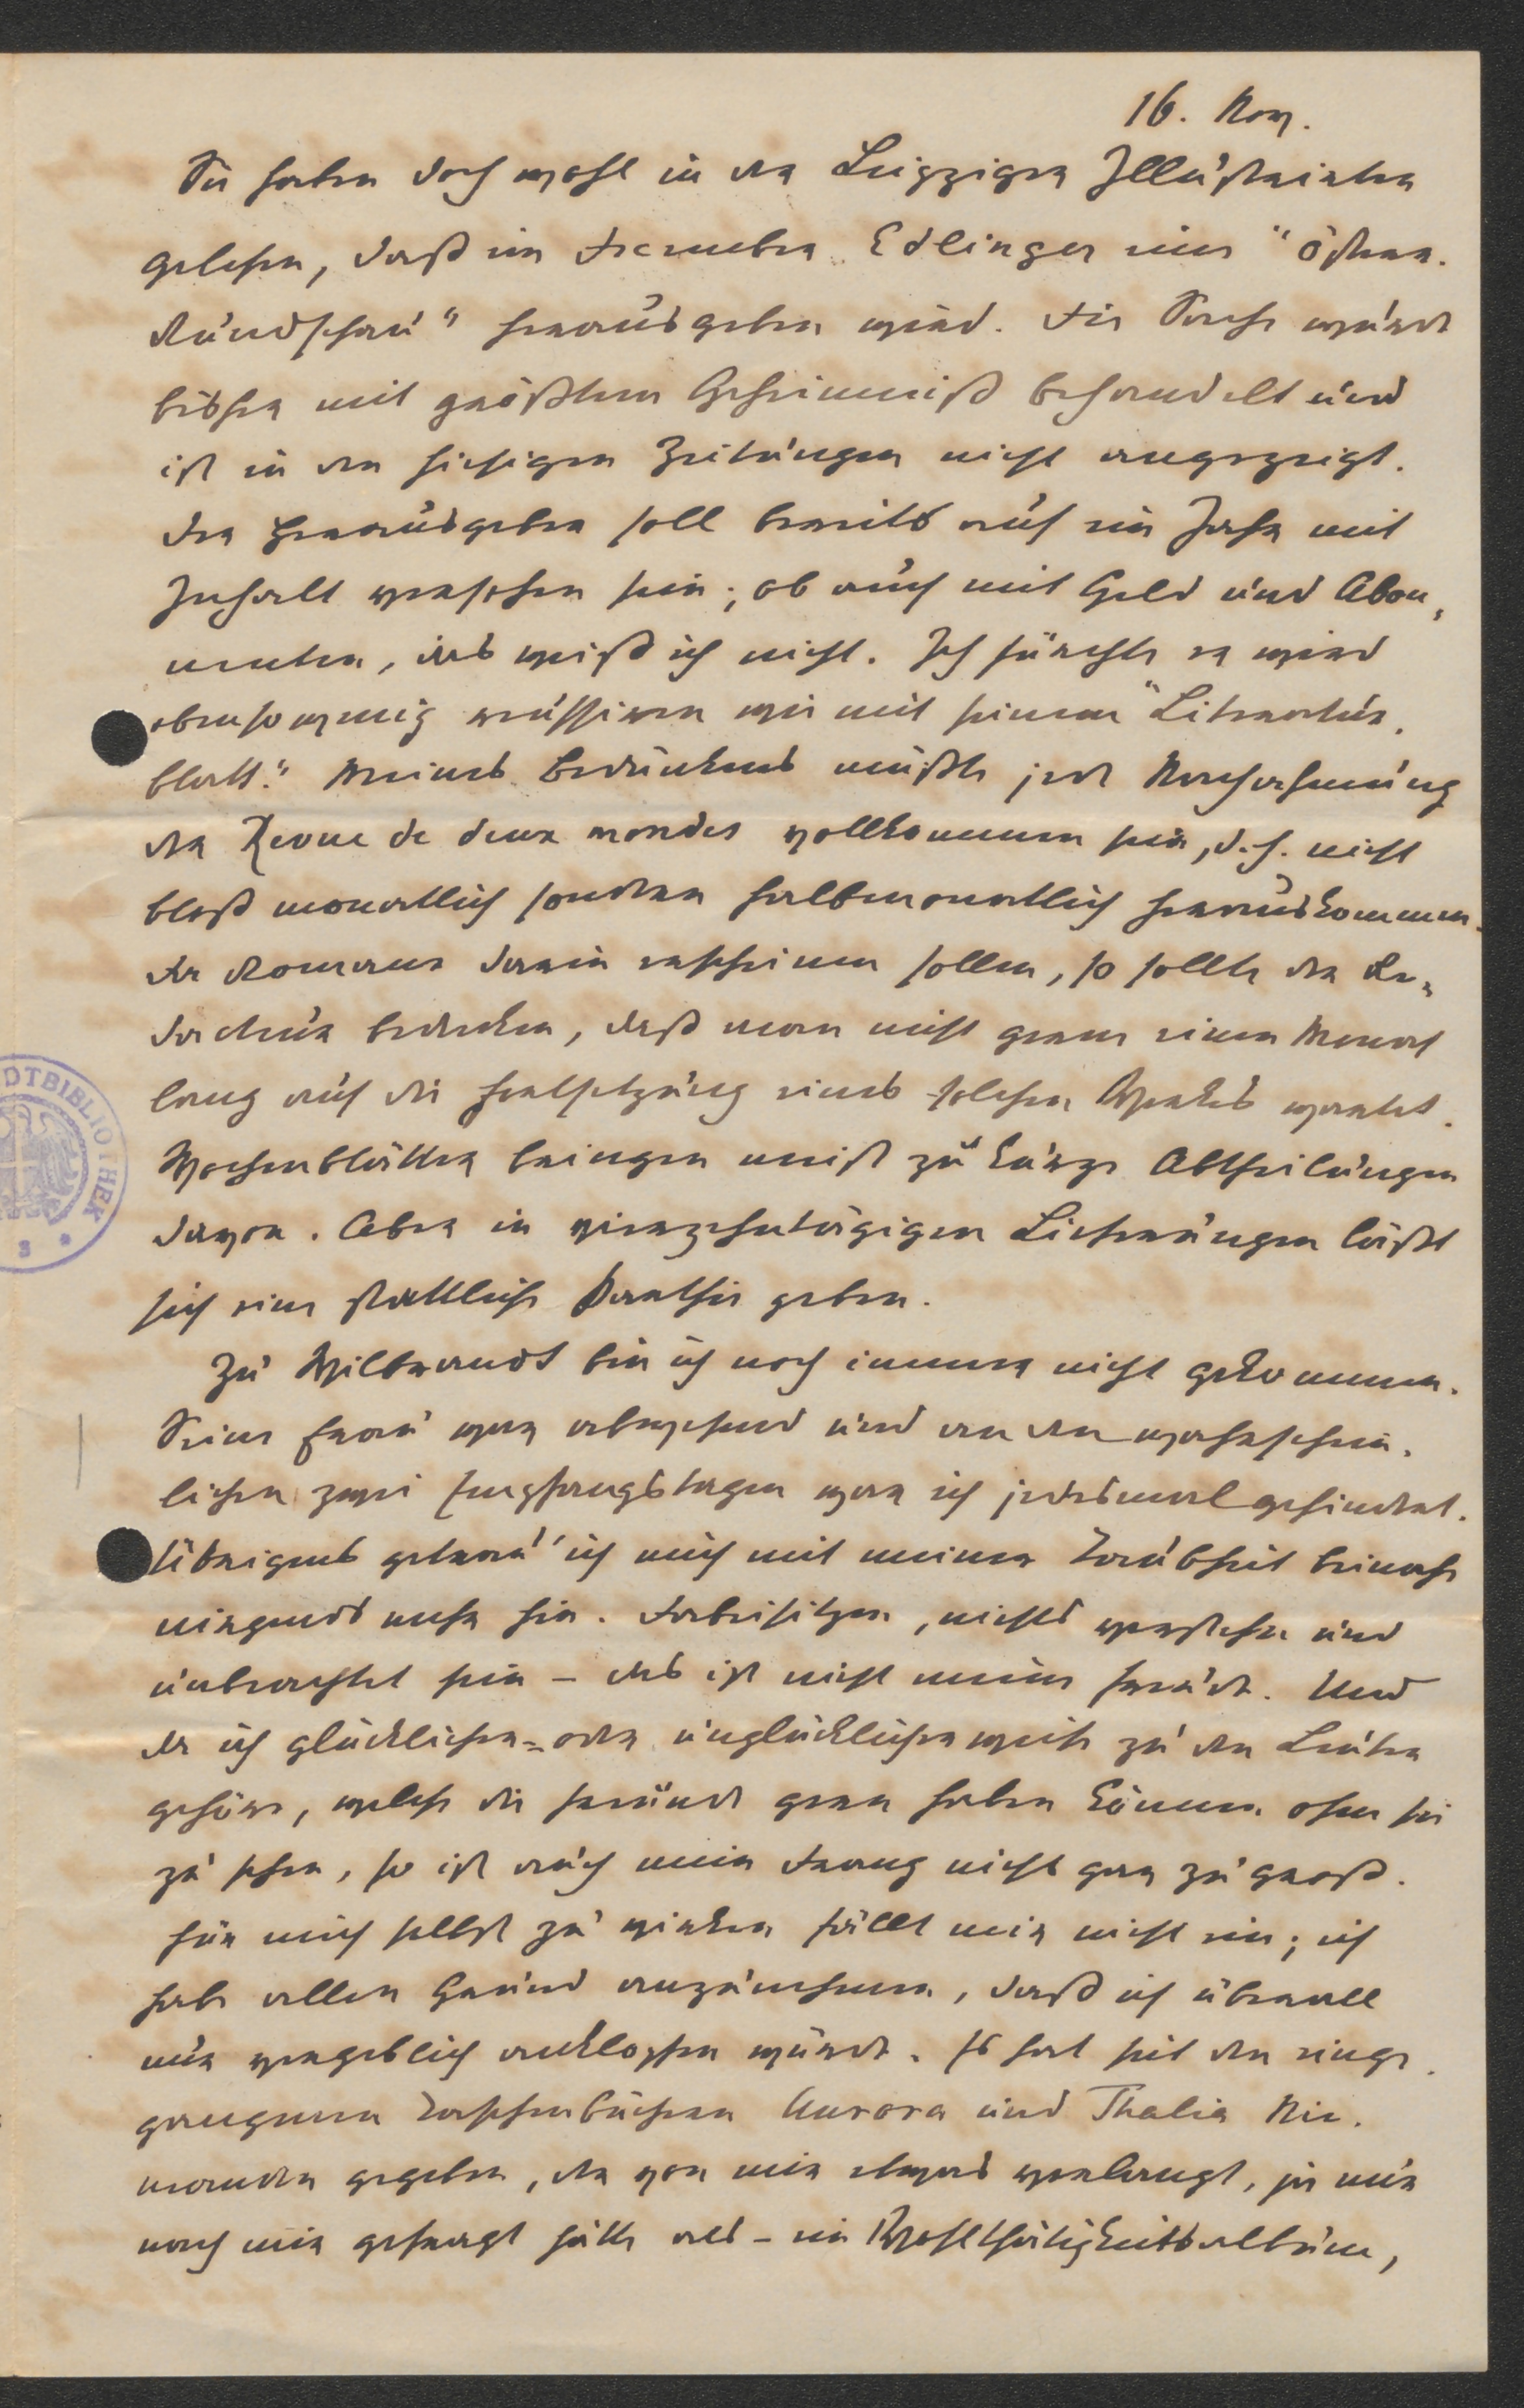 16. Nov.
Sie haben doch wohl in der Leipziger Illustrirten
gelesen, daß im Dezember Edlinger eine "österr.
Rundschau" herausgeben wird. Die Sache wurde
bisher mit größtem Geheimniß behandelt und
ist in den hiesigen Zeitungen nicht angezeigt.
Der Herausgeber soll bereits auf ein Jahr mit
Inhalt versehen sein; ob auch mit Geld und Abon-
nenten, das weiß ich nicht. Ich fürchte er wird
ebensowenig reüssiren wie mit seinem "Literatur-
blatt." Meines Bedünkens müßte jede Nachahmung
der Revue de deux mondes vollkommen sein, d.h. nicht
bloß monatlich sondern halbmonatlich herauskommen.
Da Romane darin erscheinen sollen, so sollte der Re-
dacteur bedenken, daß man nicht gerne einen Monat
lang auf die Fortsetzung eines solchen Werkes wartet.
Wochenblätter bringen meist zu kurze Abtheilungen
davon. Aber in vierzehntägigen Lieferungen läßt
sich eine stattliche Parthie geben.
Zu Wilbrandt bin ich noch immer nicht gekommen.
Seine Frau war abwesend und an den wahrschein-
lichen zwei Empfangstagen war ich jedesmal gehindert.
Übrigens getrau' ich mich mit meiner Taubheit beinahe
nirgends mehr hin. Dabeisitzen, nichts verstehen und
unbeachtet sein – das ist nicht meine Freude. Und
da ich glücklicher- oder unglücklicherweise zu den Leuten
gehöre, welche die Freunde gern haben können ohne sie
zu sehen, so ist auch mein Drang nicht gar zu groß.
Für mich selbst zu wirken fällt mir nicht ein; ich
habe allen Grund anzunehmen, daß ich überall
nur vergeblich anklopfen würde. Es hat seit den einge-
gangenen Taschenbüchern Aurora und Thalia Nie-
manden gegeben, der von mir etwas verlangt, ja nur
nach mir gefragt hätte als – ein Wohlthätigkeitsalbum,
DTBIBLIOTHEK